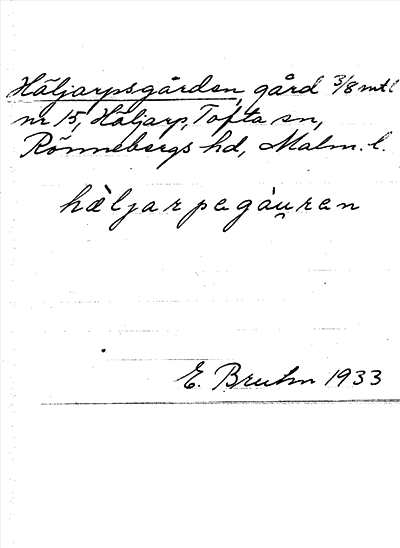 Häljarpsgården, gård 3/8 mtl
nr 15, Häljarp, Tofta sn,
Rönnebergs hd, Malm. l.
hὲljarpagåu̯ran
E. Bruhn 1933